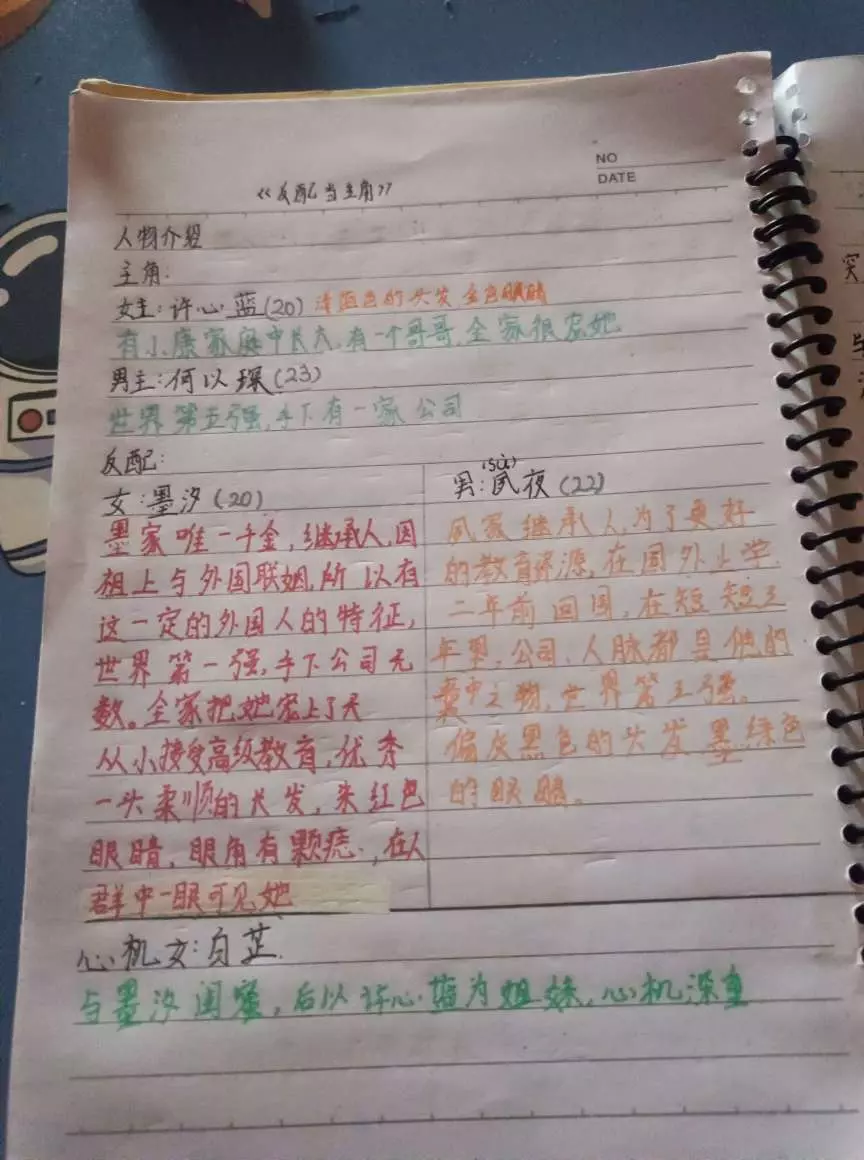 NO
DATE
《反配当主角》
人物介绍
主角:
女主:许心蓝(20) 色的头发 金色眼睛
有小康家庭中长大,有一个哥哥,全家很宠她
男主:何以琛(23)
世界第五强,手下有一家公司
反配:
女:墨汐(20)
墨家唯一千金,继承人,因
祖上与外国联姻,所以有
这一定的外国人的特征,
世界第一强,手下公司无
数。全家把她宠上了天
从小接受高级教育,优秀
一头柔顺的长发,朱红色
眼暗,眼角有颗痣.,在人
群中一眼可见她
(sù)
男:夙夜(22)
夙家继承人,为了更好
的教育资源,在国外上学.
二年前回国,在短短三
年里,公司、人脉都是他的
囊中之物,世界第三强。
偏灰黑色的头发墨绿色
的眼眼。
心机女:白芷
与墨汐闺蜜,后以许心蓝为姐妹,心机深重
突